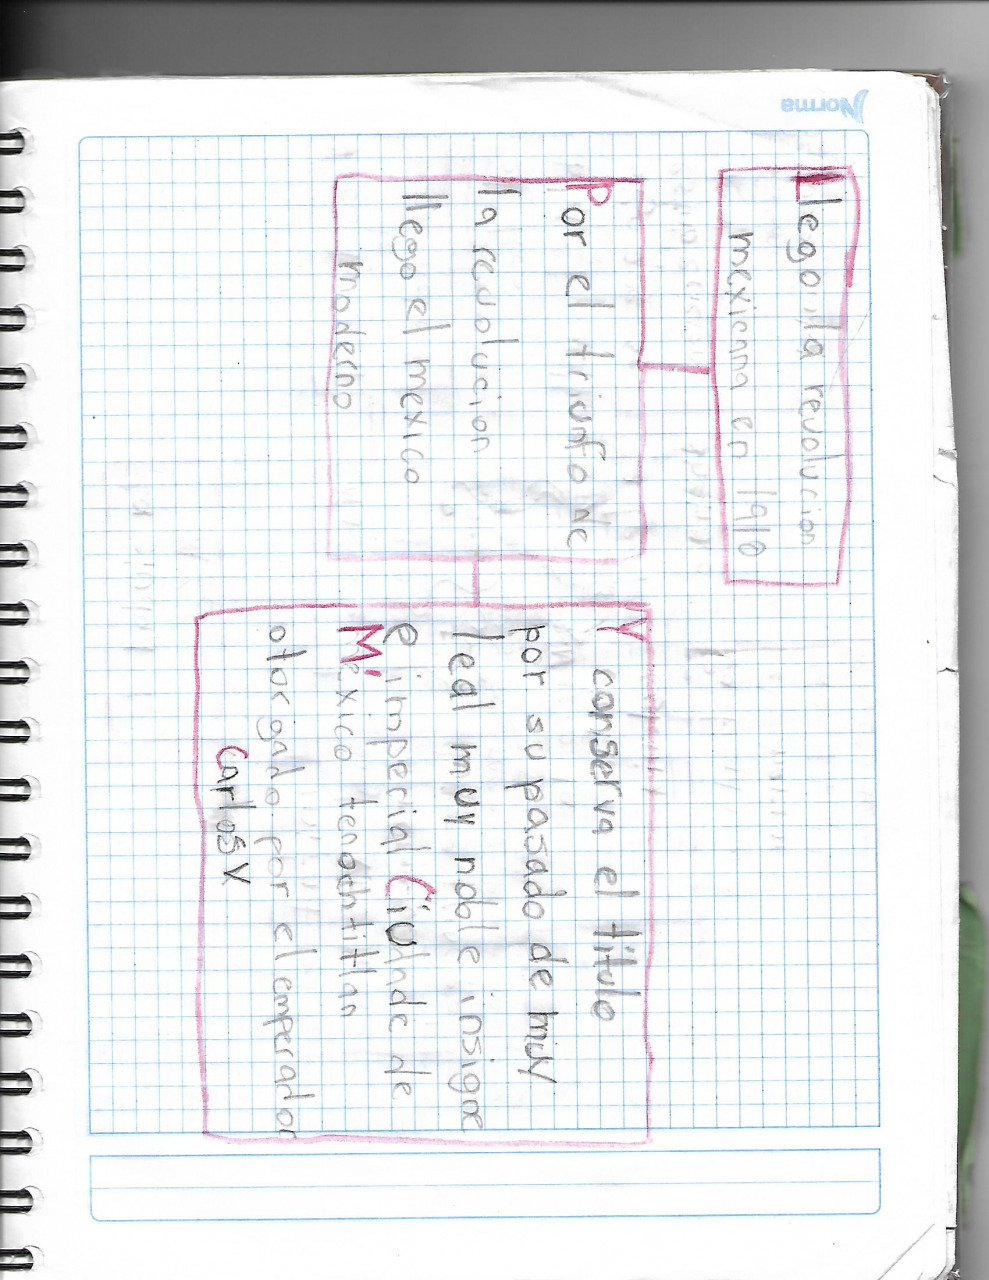 Norma
Llego la revolucion
mexicnna en 1910
Por el triunfo de
la revolucion
llego el mexico
moderno
Y conserva el titulo
por su pasado de muy
leal muy noble insigne
e imperial Ciudnde de
Mexico tenochtitlan
otorgado por el emperador
Carlos V